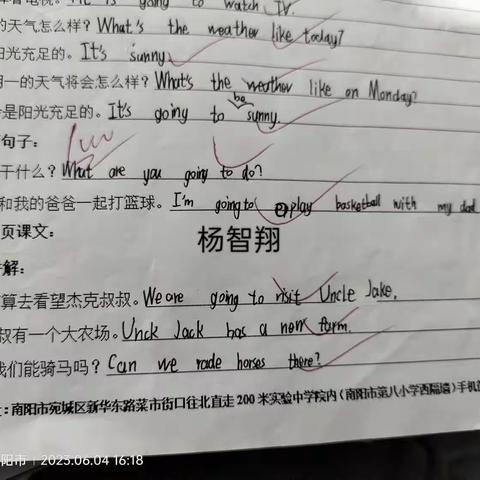 看电视。He is going to watch TV.
的天气怎么样？What's the weather like today?
阳光充足的。It's sunny.
一的天气将会怎么样？What's the weather like on Monday?
是阳光充足的。It's going to be sunny.
句子：
干什么？What are you going to do?
和我的爸爸一起打篮球。I'm going to play basketball with my dad
页课文：
杨智翔
解：
算去看望杰克叔叔。We are going to visit Uncle Jake.
叔有一个大农场。Unck Jack has a new farm.
我们能骑马吗？Can we rade horses there?
：南阳市宛城区新华东路菜市街口往北直走 200 米实验中学院内（南阳市第八小学西隔墙）手机
阳市 | 2023.06.04 16:18